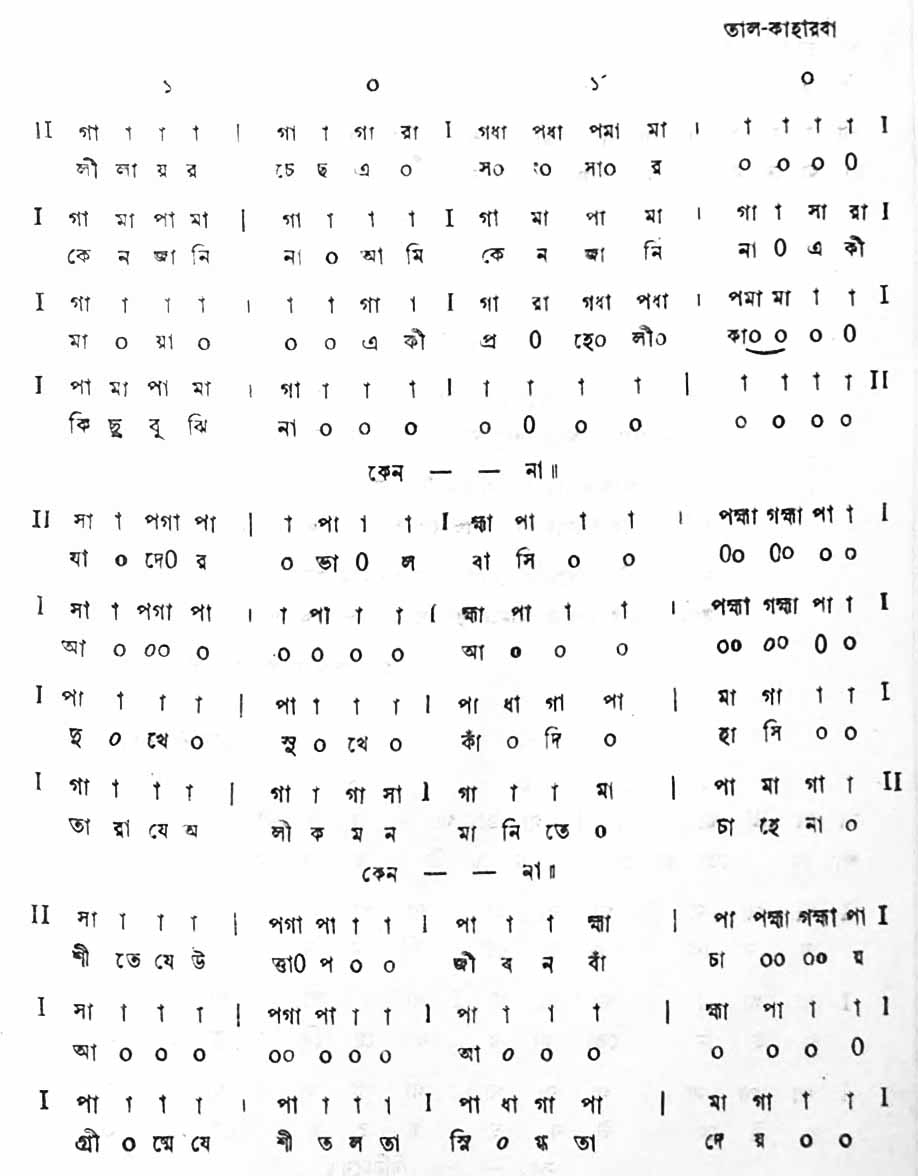 তাল-কাহারবা
১ ০ ১´ ০
II গা া া া | গা া গারা I গধা পধা পমা মা । া া া া I
লী লা য় র চে ছ এ ০ স০ ং০ সা০ র ০ ০ ০ ০
I গা মা পা মা | গা া া া I গা মা পা মা । গা া সা রা I
কে ন জা নি না ০ আ মি কে ন জা নি না ০ এ কী
I গা া া া । া া গা া I গা রা গধা পধা । পমা মা া া I
মা ০ য়া ০ ০ ০ এ কী প্র ০ হে০ লী০ কা০ ০ ০ ০
I পা মা পা মা । গা া া া I া া া া | া া া া II
কি ছু বু ঝি না ০ ০ ০ ০ ০ ০ ০ ০ ০ ০ ০
কেন — — না॥
II সা া পগা পা | া পা া া I হ্মা পা া া । পহ্মা গহ্মা পা া I
যা ০ দে০ র ০ ভা ০ ল বা সি ০ ০ ০০ ০০ ০ ০
I সা া পগা পা । া পা া া I হ্মা পা া া । পহ্মা গহ্মা পা া I
আ ০ ০০ ০ ০ ০ ০ ০ আ ০ ০ ০ ০০ ০০ ০ ০
I পা া া া | পা া া া I পা ধা গা পা | মা গা া া I
দু ০ খে ০ সু ০ খে ০ কাঁ ০ দি ০ হা সি ০ ০
I গা া া া | গা া গা সা I গা া া মা | পা মা গা া II
তা রা যে অ লী ক ম ন মা নি তে ০ চা হে না ০
কেন — — না॥
II সা া া া | পগা পা া া I পা া া হ্মা | পা পহ্মা গহ্মা পা I
শী তে যে উ ত্তা০ প ০ ০ জী ব ন বাঁ চা ০০ ০০ য়
I সা া া া | পগা পা া া I পা া া া | হ্মা পা া া I
আ ০ ০ ০ ০০ ০ ০ ০ আ ০ ০ ০ ০ ০ ০ ০
I পা া া া । পা া া া I পা ধা গা পা | মা গা া া I
গ্রী ০ ষ্মে যে শী ত ল তা স্নি ০ গ্ধ তা দে য় ০ ০